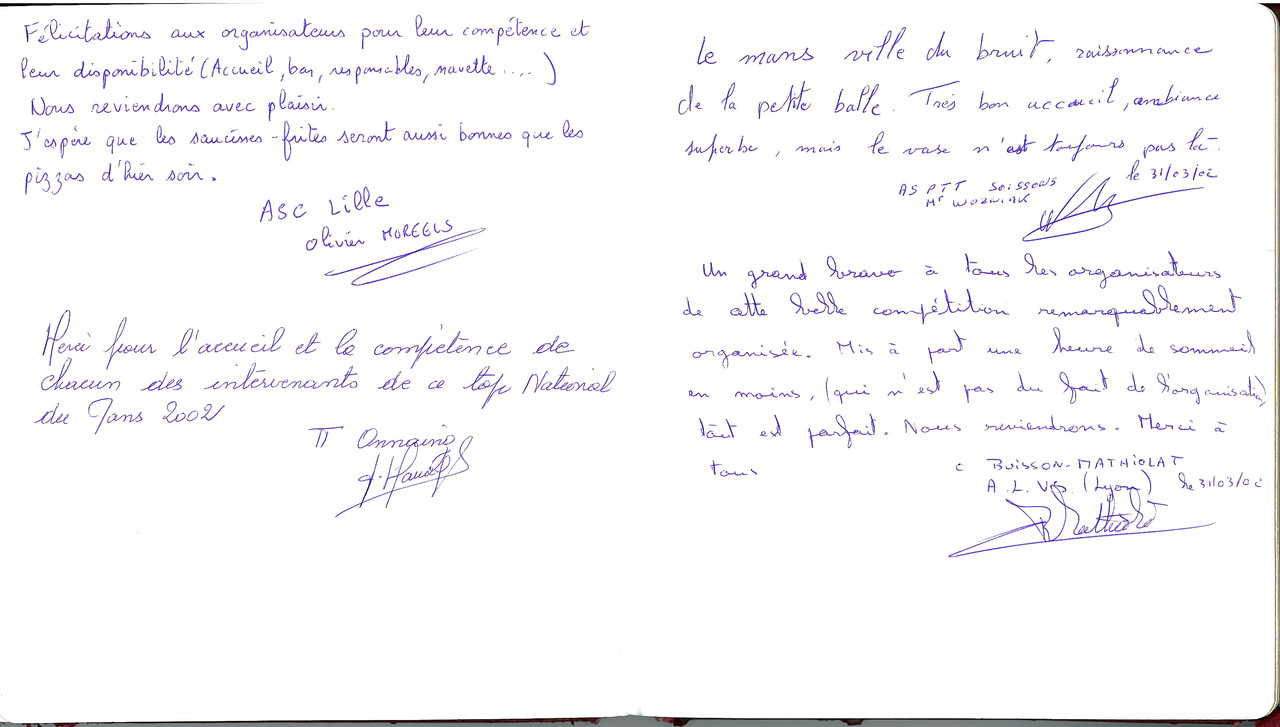 Félicitations aux organisateurs pour leur compétence et
leur disponibilité (Accueil, bar, responsables, navette .....)
Nous reviendrons avec plaisir.
J'espère que les saucisses-frites seront aussi bonnes que les
pizzas d'hier soir.
ASC Lille
Olivier MOREELS
Merci pour l'accueil et la compétence de
chacun des intervenants de ce top National
du Mans 2002
TT Onnaing
Le mans ville du bruit, raissonnance
de la petite balle. Très bon accueil, ambiance
superbe, mais le vase n'est toujours pas là.
le 31/03/02
AS PTT SOISSONS
Mr WOZNIAK
Un grand bravo à tous les organisateurs
de cette belle compétition remarquablement
organisée. Mis à part une heure de sommeil
en moins, (qui n'est pas du fait de l'organisation)
tout est parfait. Nous reviendrons. Merci à
tous
C BUISSON-MATHIOLAT
A.L. (Lyon) le 31/03/02